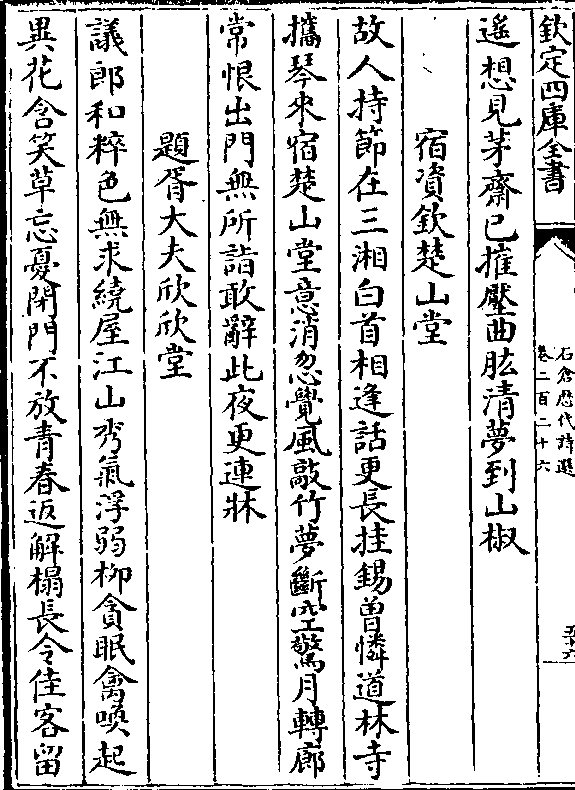 欽定四庫全書
石倉歷代詩選
卷二百二十六
五十六
遥想見茅齋已摧壓曲肱清夢到山椒
宿資欽楚山堂
故人持節在三湘白首相逢話更長挂錫曽憐道林寺
攜琴來宿楚山堂意消忽覺風敲竹夢斷空驚月轉廊
常恨出門無所詣敢辭此夜更連牀
題胥大夫欣欣堂
議郎和粹色無求繞屋江山秀氣浮弱柳貪眠禽喚起
異花含笑草忘憂閉門不放青春返解榻長令佳客留